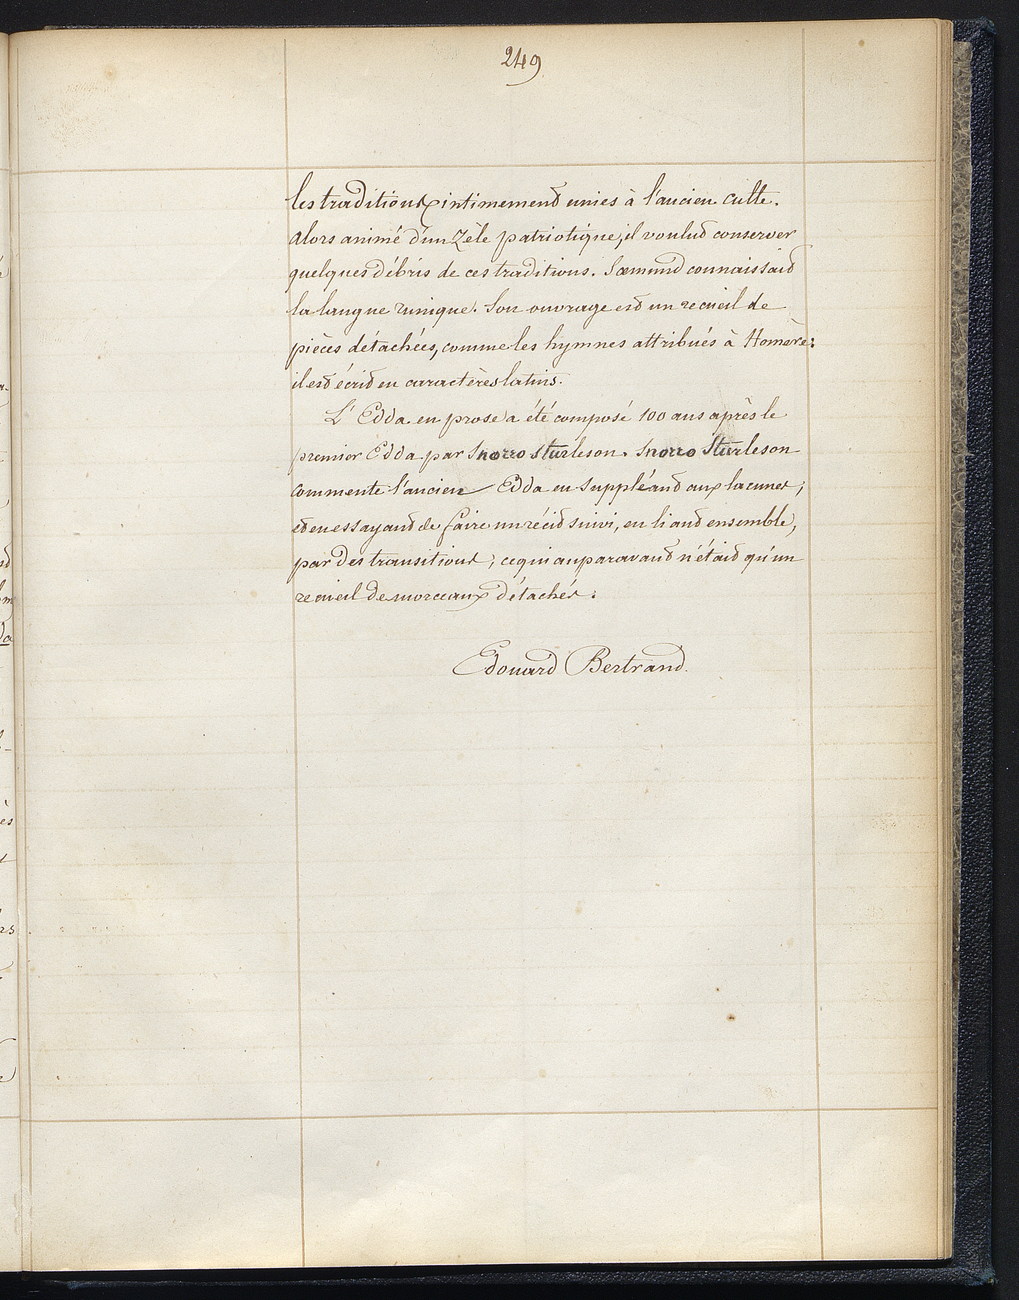 249
les traditions intimement unies à l'ancien culte.
Alors animé d'un Zèle patriotique, il voulut conserver
quelques débris de ces traditions. Sœmund connaissait
la langue runique. Son ouvrage est un recueil de
pièces détachées, comme les hymnes attribués à Homère:
il est écrit en caractères latins.
L'Edda en prose a été composé 100 ans après le
premier Edda par Snorro Sturleson. Snorro Sturleson
commente l'ancien Edda en suppléant aux lacunes,
et en essayant de faire un récit suivi, en liant ensemble,
par des transitions, ce qui auparavant n'était qu'un
recueil de morceaux détachés.
Edouard Bertrand.